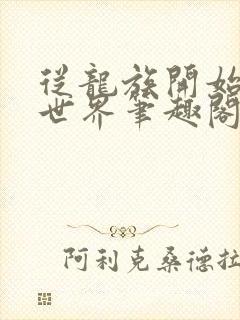 從龍族開始
世界筆趣閣
阿利克桑德拉